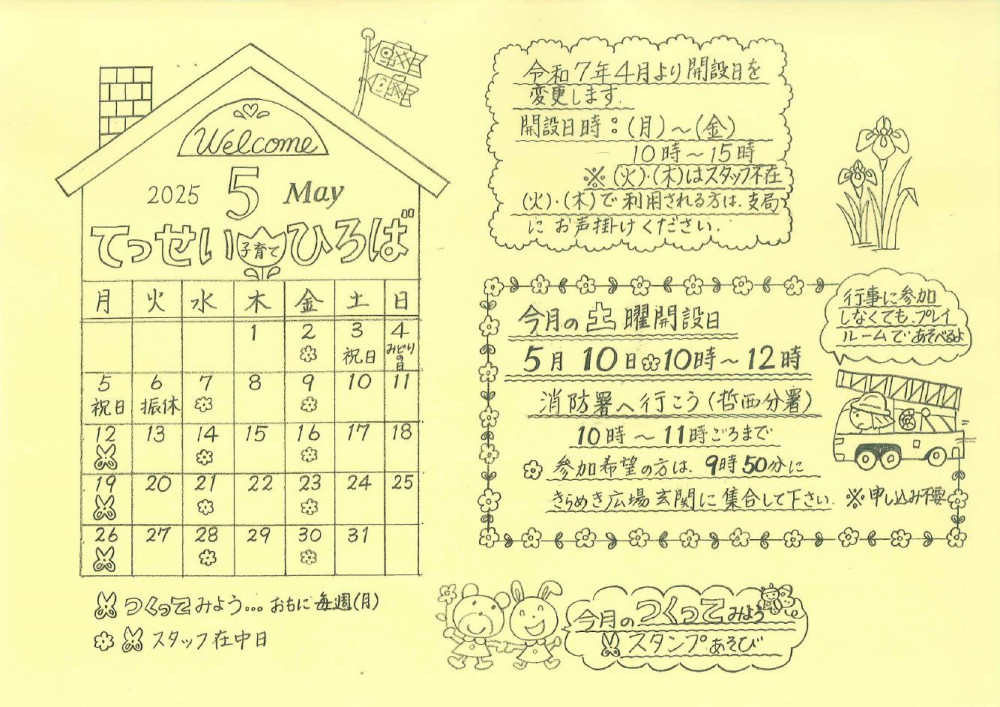 Welcome
2025 5 May
てっせい子育てひろば
月 火 水 木 金 土 日
1 2 3 4
祝日 みどりの日
5 6 7 8 9 10 11
祝日 振休
12 13 14 15 16 17 18
19 20 21 22 23 24 25
26 27 28 29 30 31
つくってみよう...おもに毎週(月)
スタッフ在中日
令和7年4月より開設日を
変更します.
開設日時:(月)~(金)
10時~15時
※(火)・(木)はスタッフ不在
(火)・(木)で利用される方は、支局
にお声掛けください.
今月の土曜開設日
5月10日10時~12時
消防署へ行こう(哲西分署)
10時~11時ごろまで
参加希望の方は、9時50分に
きらめき広場玄関に集合して下さい. ※申し込み不要
行事に参加
しなくても、プレイ
ルームであそべるよ
今月のつくってみよう
スタンプあそび